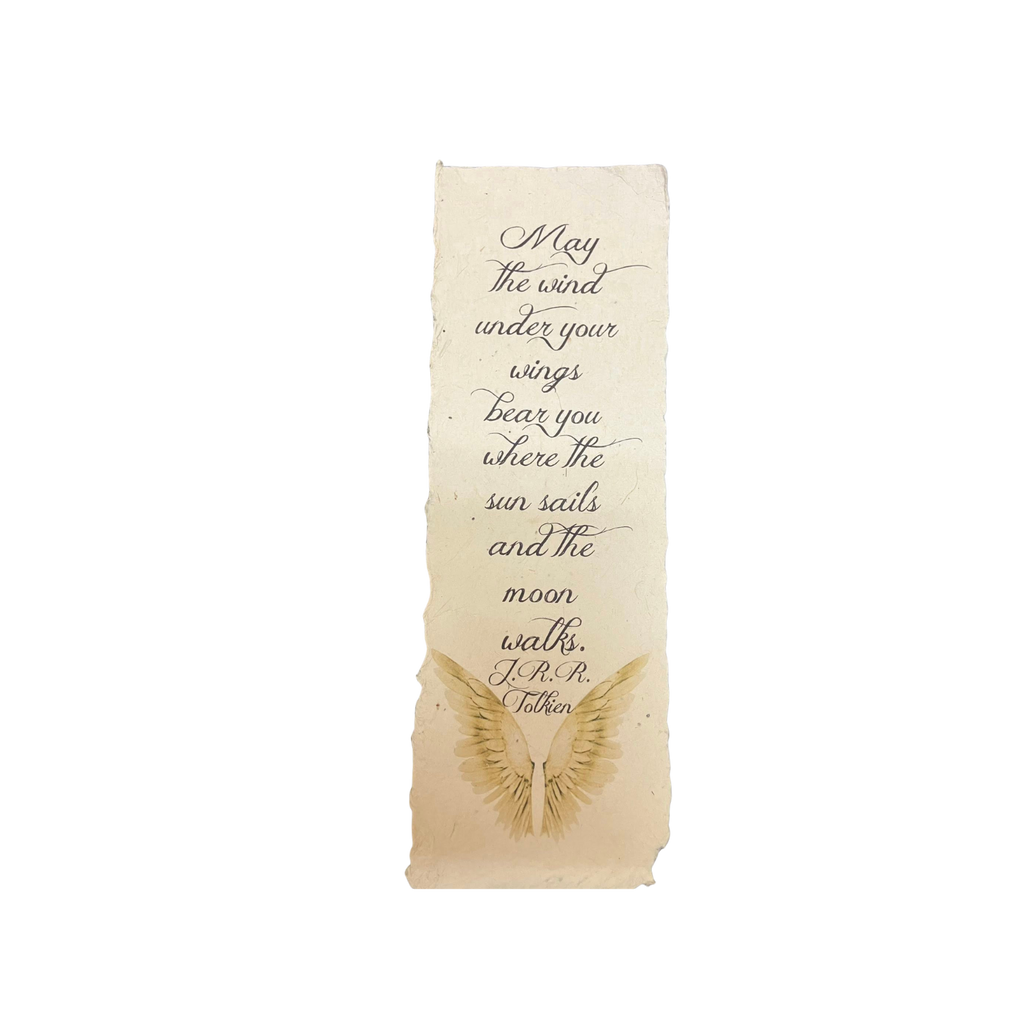 May
the wind
under your
wings
bear you
where the
sun sails
and the
moon
walks.
J.R.R.
Tolkien